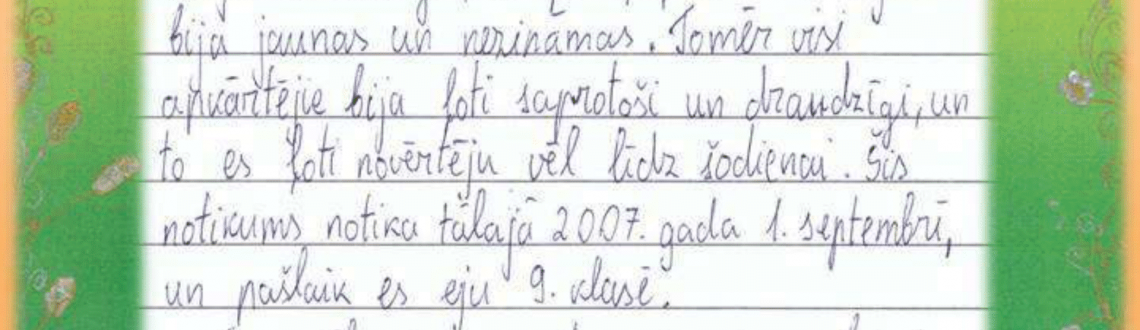 bija jaunas un nezināmas. Tomēr visi
apkārtējie bija ļoti saprotoši un draudzīgi, un
to es ļoti novērtēju vēl līdz šodienai. Šis
notikums notika tālajā 2007. gada 1. septembrī,
un pašlaik es eju 9. klasē.